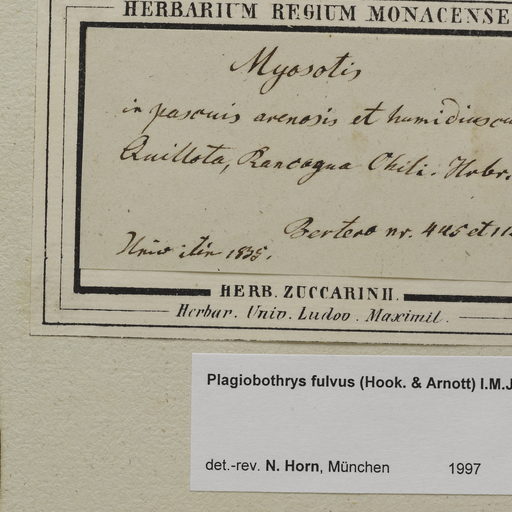 HERBARIUM REGIUM MONACENSE
Myosotis
in pascuis arenosis et humidiuscu
Quillota, Rancagua Chili.
Bertero nr. 445 et 11
Unio itin 1835.
HERB. ZUCCARINII.
Herbar. Univ. Ludov. Maximil.
Plagiobothrys fulvus (Hook. & Arnott) I.M.J
det.-rev. N. Horn, München 1997